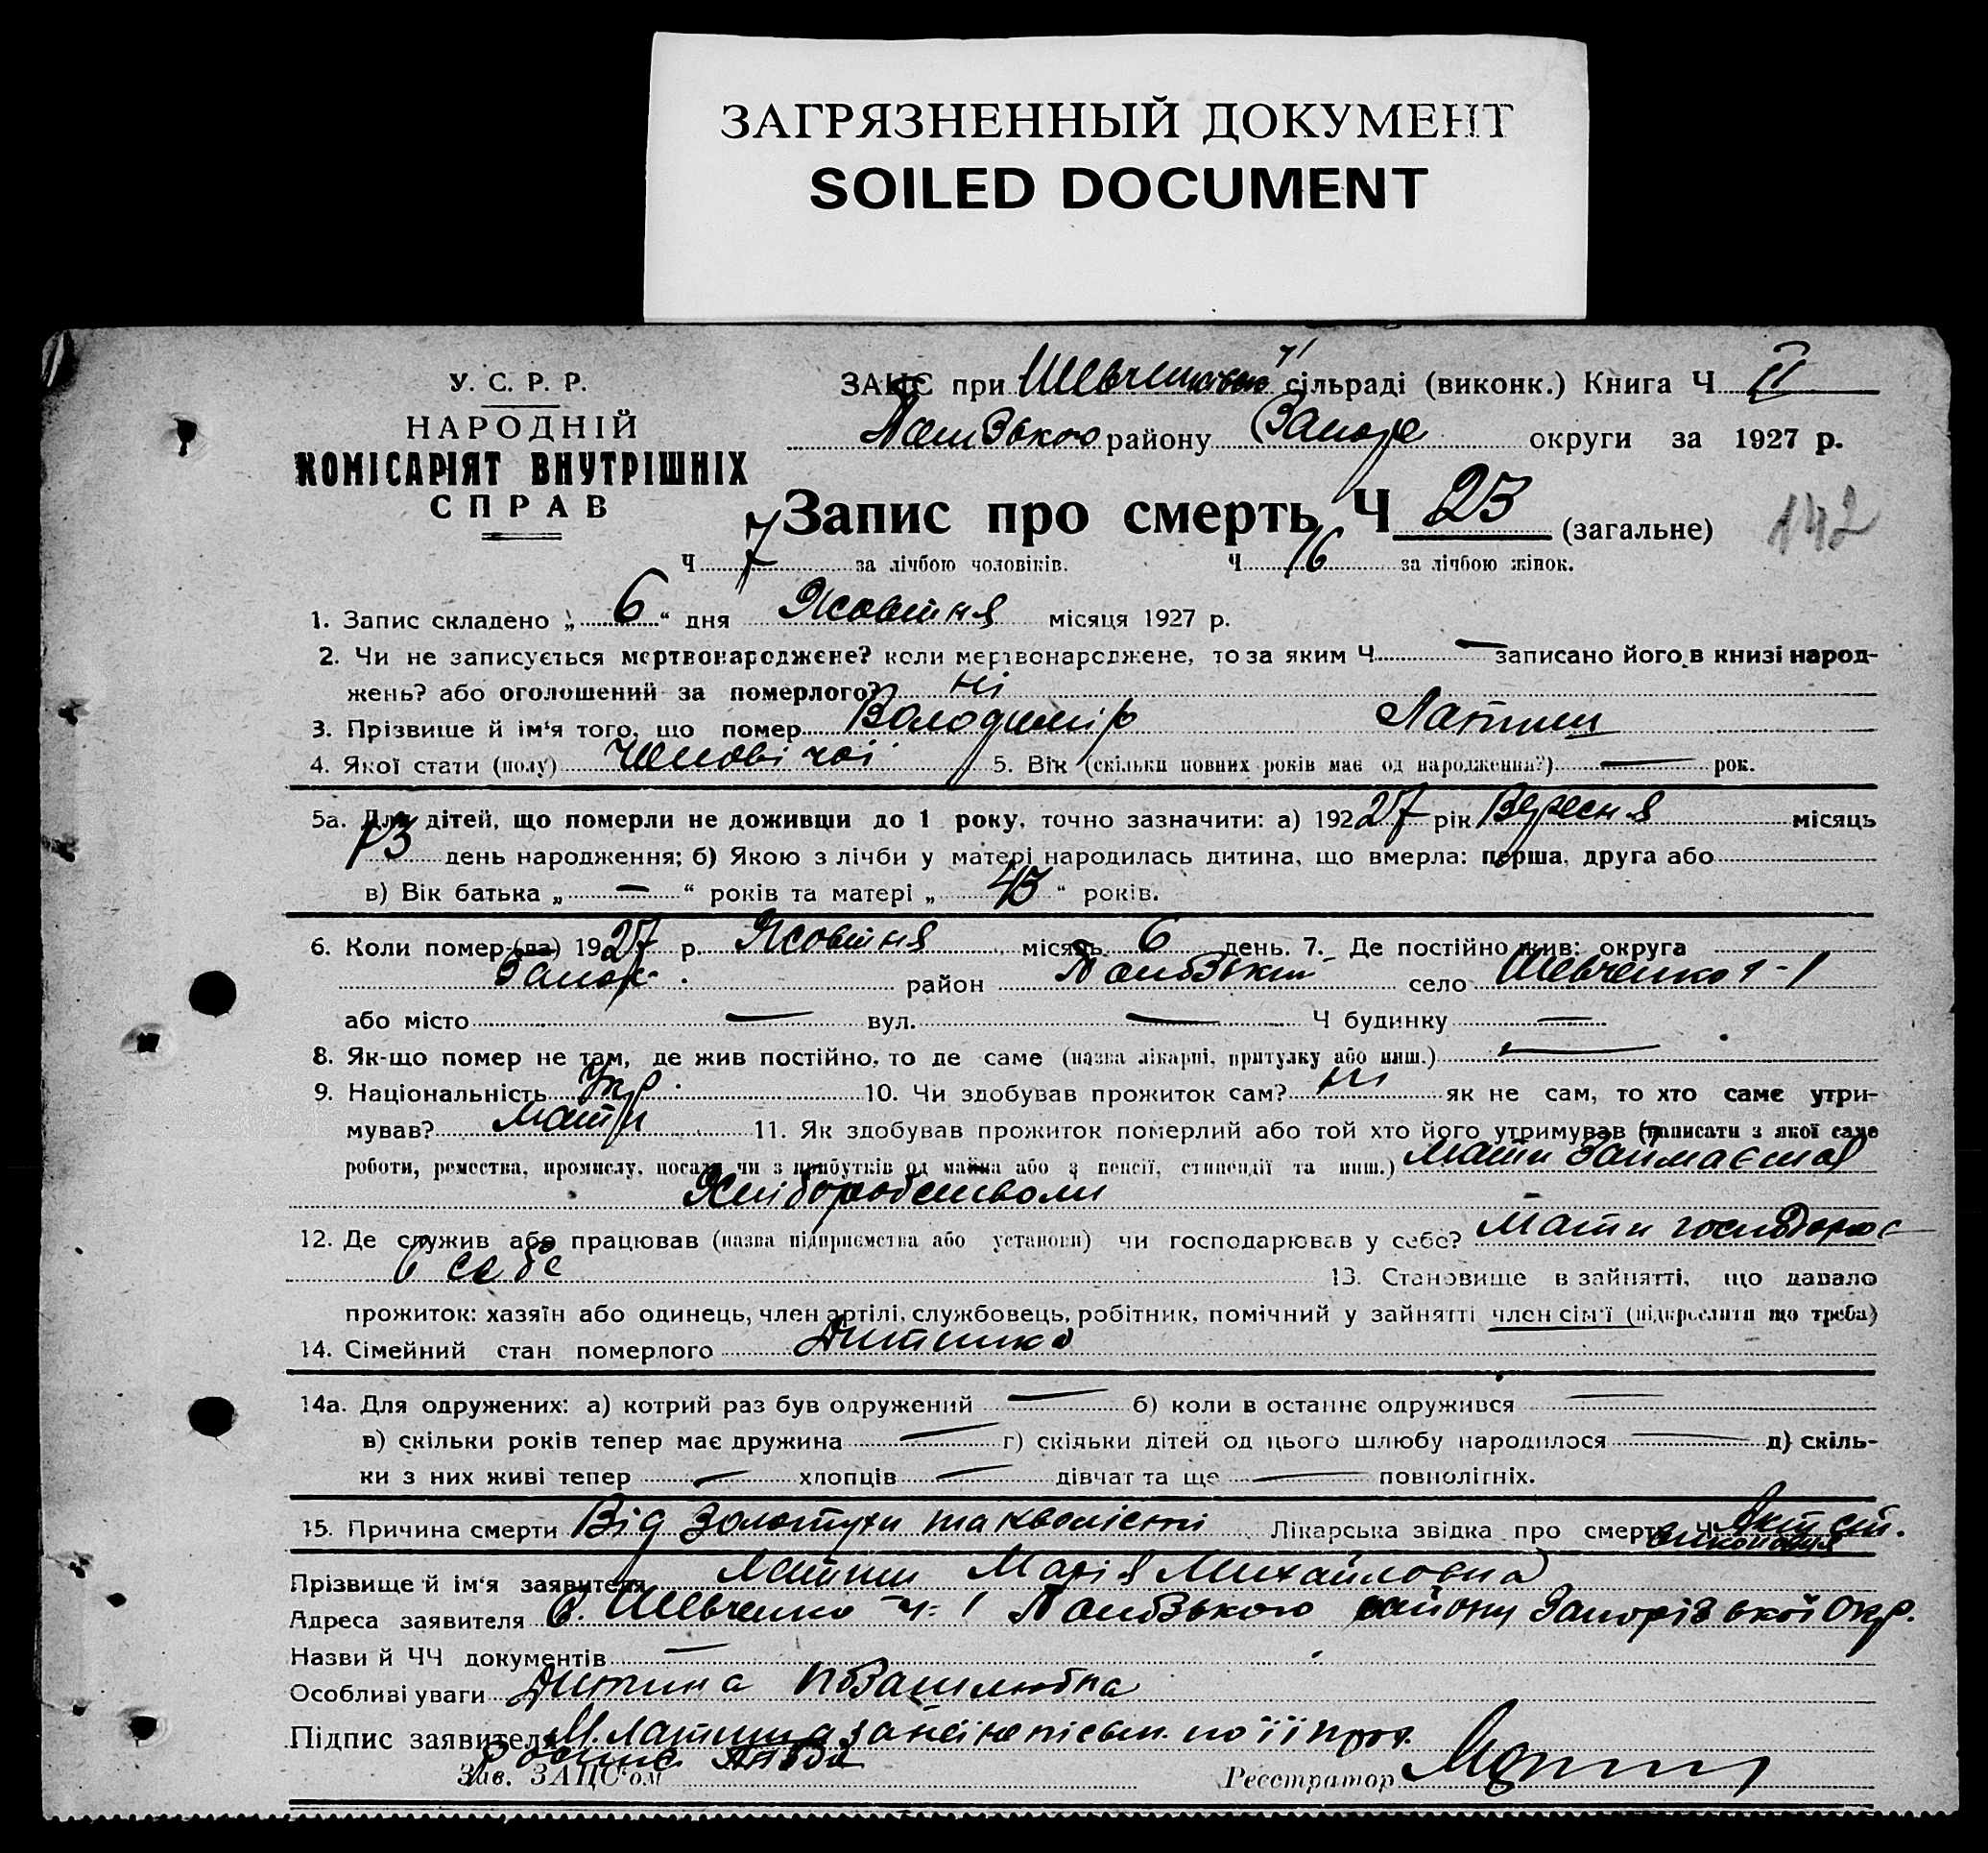 ЗАГРЯЗНЕННЫЙ ДОКУМЕНТ
SOILED DOCUMENT
У. С. Р. Р.
НАРОДНІЙ
КОМІСАРІЯТ ВНУТРІШНІХ
СПРАВ
ЗАЦС при Шевченківській сільраді (виконк.) Книга Ч II
району Запоре округи за 1927 р.
Запис про смерть Ч 23 (загальне)
142
Ч 7 за лічбою чоловіків. Ч 16 за лічбою жінок.
1. Запис складено „ 6 “ дня Жовтня місяця 1927 р.
2. Чи не записується мертвонароджене? коли мертвонароджене, то за яким Ч — записано його в книзі народ-
жень? або оголошений за померлого? ні
3. Прізвище й ім‘я того, що помер Володимір Латиш
4. Якої стати (полу) Чоловічої 5. Вік (скільки повних років має од народження?) — рок.
5а. Для дітей, що померли не доживши до 1 року, точно зазначити: а) 192 27 рік Вересня місяць
13 день народження; б) Якою з лічби у матері народилась дитина, що вмерла: перша, друга або
в) Вік батька „ — “ років та матері „ 43 “ років.
6. Коли помер (ла) 19 27 р. Жовтня місяць 6 день. 7. Де постійно жив: округа
Запор. район село Шевченко ч-1
або місто — вул. — Ч будинку —
8. Як-що помер не там, де жив постійно, то де саме (назва лікарні, притулку або инш.) —
9. Національність Укр. 10. Чи здобував прожиток сам? ні як не сам, то хто саме утри-
мував? Мати 11. Як здобував прожиток померлий або той хто його утримував (написати з якої саме
роботи, ремества, промислу, посади чи з прибутків од майна або з пенсії, стипендії та инш.) Мати займається
Хліборобством
12. Де служив або працював (назва підприємства або установи) чи господарював у себе? Мати господарює
в себе 13. Становище в зайнятті, що давало
прожиток: хазяїн або одинець, член артілі, службовець, робітник, помічний у зайнятті член сім‘ї (підкреслити що треба)
14. Сімейний стан померлого Дитинка
14а. Для одружених: а) котрий раз був одружений — б) коли в останнє одружився —
в) скільки років тепер має дружина — г) скільки дітей од цього шлюбу народилося — д) скіль-
ки з них живі тепер — хлопців — дівчат та ще — повнолітніх.
15. Причина смерти Від золотухи та кволісті Лікарська звідка про смерть Ч Акт сіл.
виконавця
Прізвище й ім‘я заявителя Латиш Марія Михайловна
Адреса заявителя С. Шевченко ч. 1 району Запорізької Окр.
Назви й ЧЧ документів —
Особливі уваги Дитина позашлюбна
Підпис заявителя М. Латиш а за неї неписьм. по її прох.
Зав. ЗАЦС‘ом Реєстратор